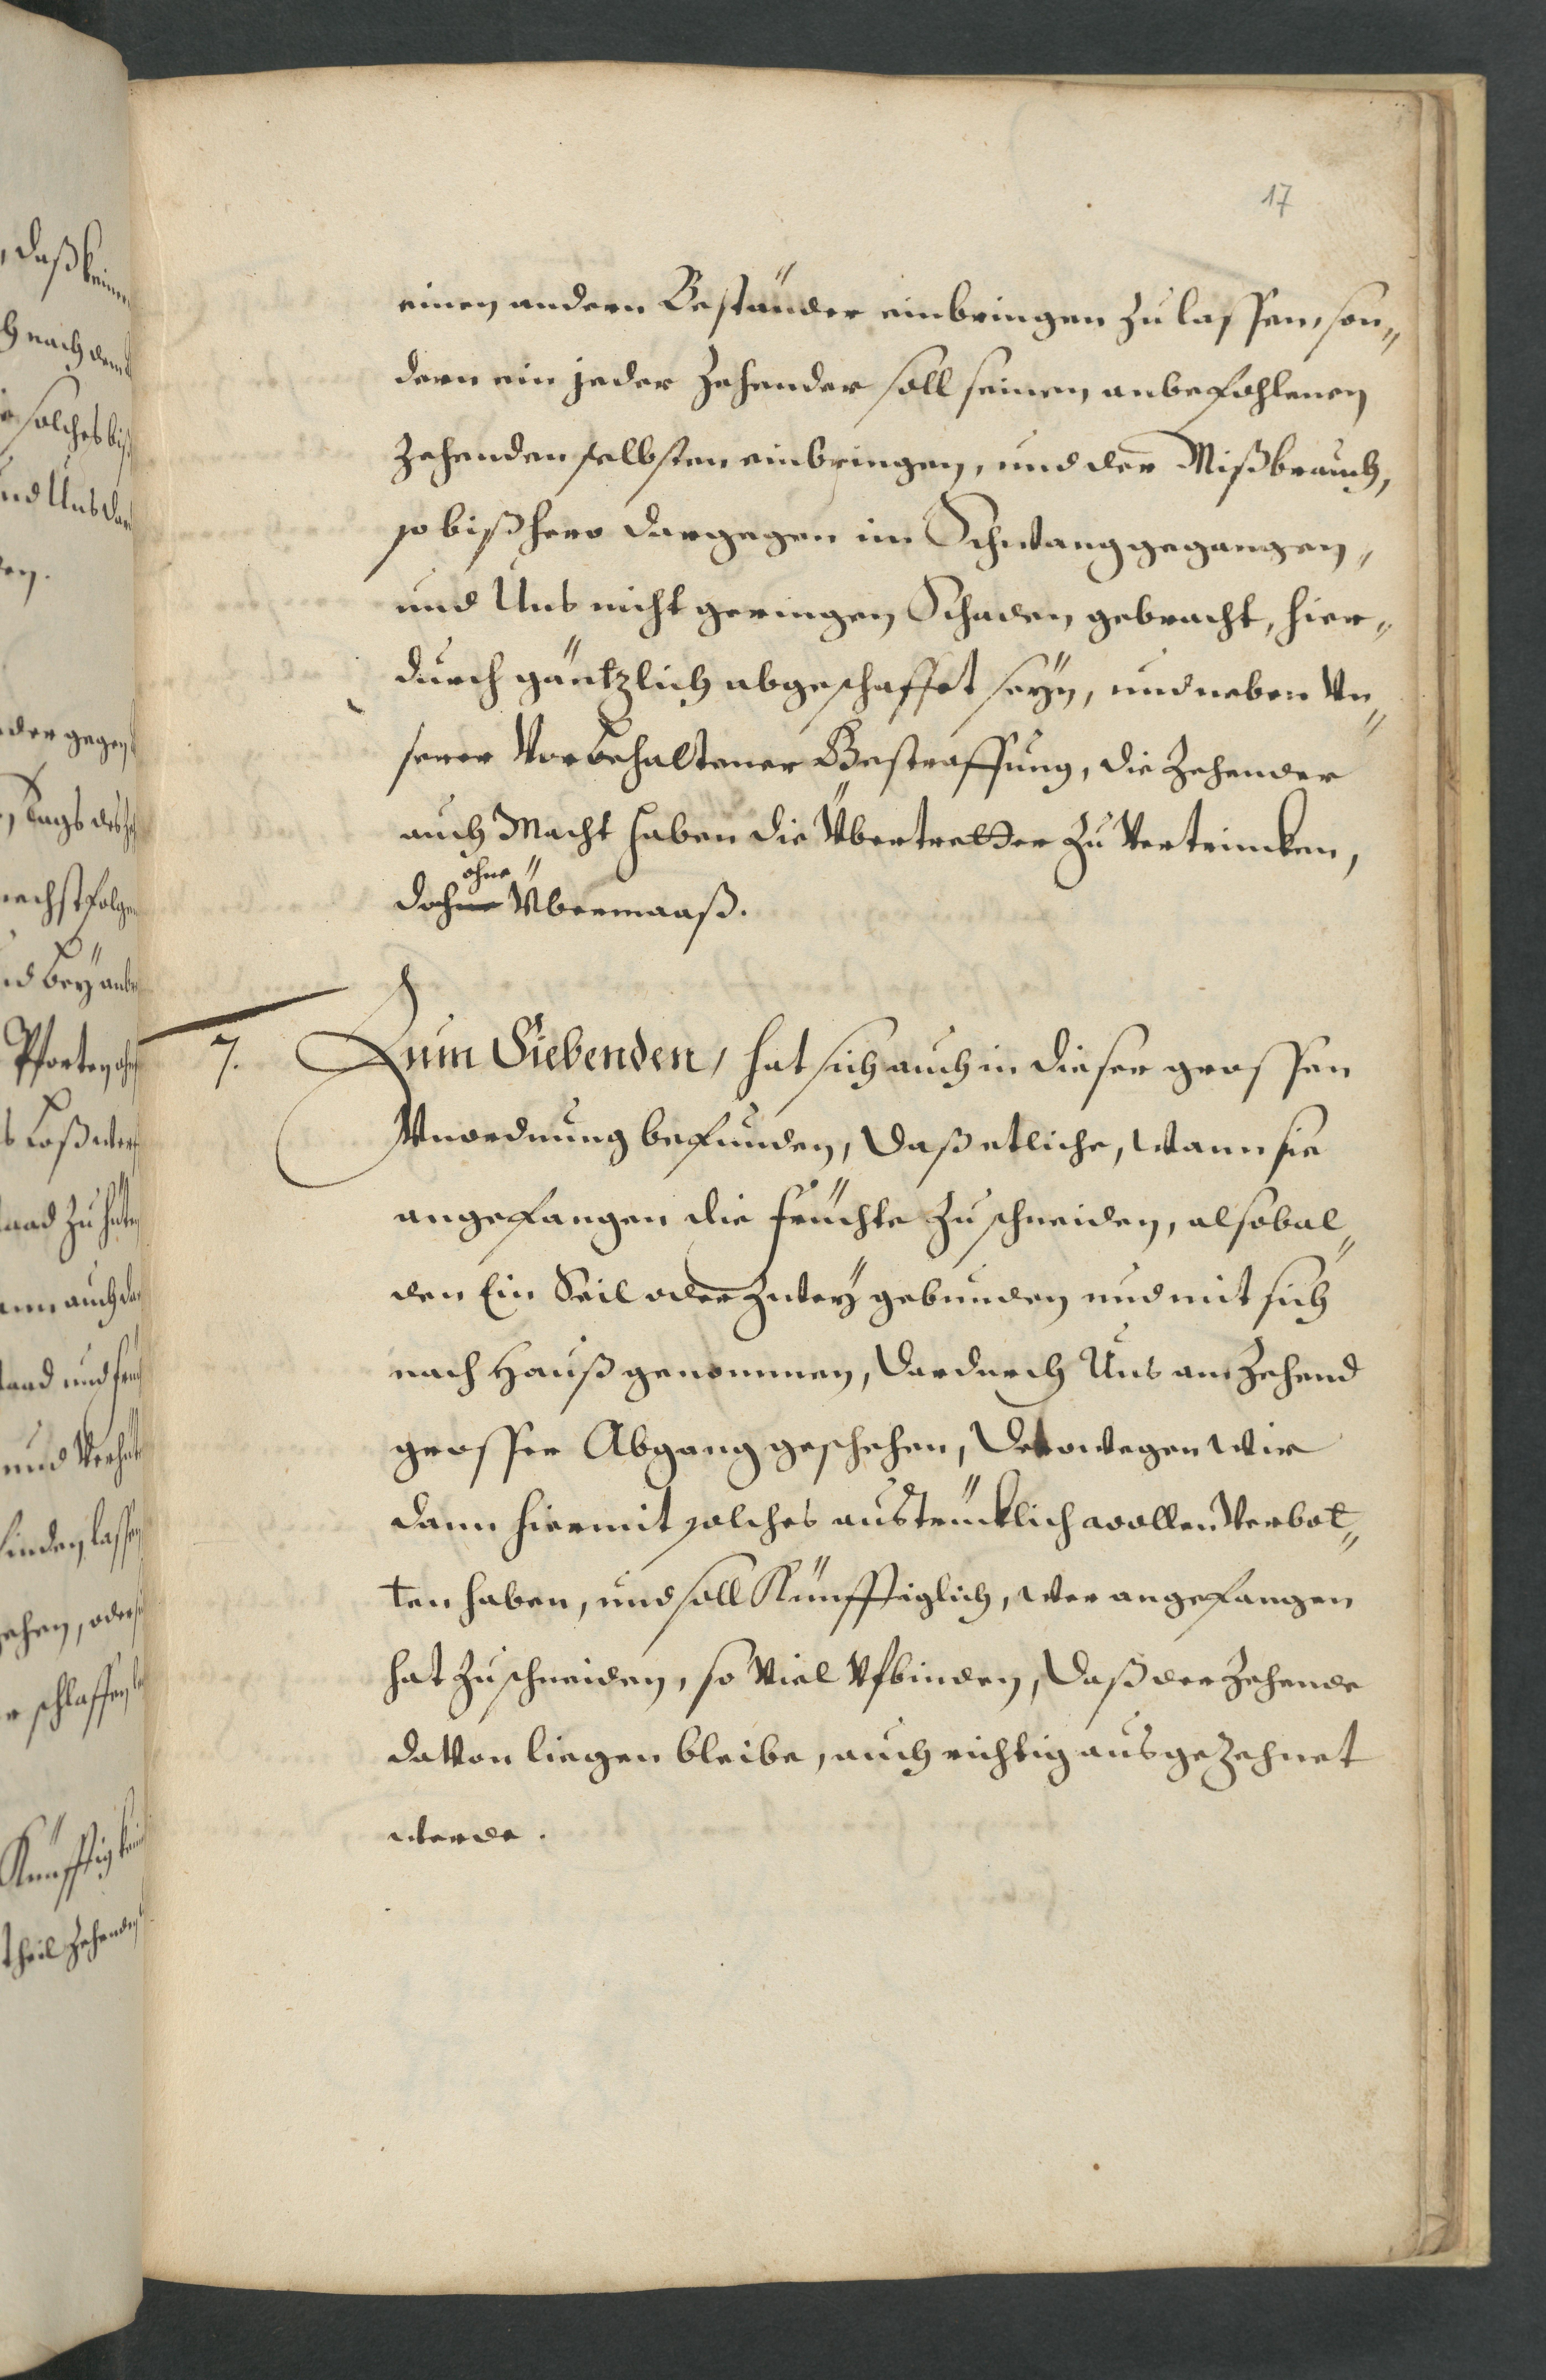 17
einen andern Beständer einbringen zu lassen, son„
dern ein jeder Zehender soll seinen anbefohlenen
Zehenden selbsten einbringen, und der Mißbrauch,
so bißhero dargegen im Schwang gegangen,
und Uns nicht geringen Schaden gebracht, hier„
durch gäntzlich abgeschaffet seÿn, und neben Vn„
serer Vorbehaltener Bestraffung, die Zehender
auch Macht haben die Übertretter zu Vertrincken,
ohne
doch Übermaaß.
7. Zum Siebenden, hat sich auch in dieser grossen
Vnordnung befunden, daß etliche, wann sie
angefangen die früchte zu schneiden, alsobal„
den Ein Seil oder Zweÿ gebunden und mit sich
nach Hauß genommen, dardurch Uns am Zehend
grosser Abgang geschehen, Derowegen wir
dann hiermit solches austrücklich wollen Verbot„
ten haben, und soll Künfftiglich, wer angefangen
hat zu schneiden, so Viel Vfbinden, daß der Zehende
davon liegen bleibe, auch richtig ausgezehnet
werde.